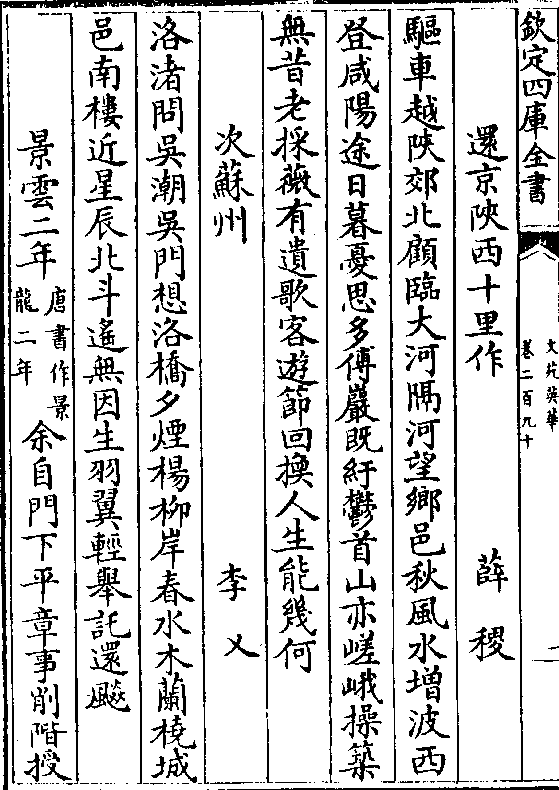 欽定四庫全書
文苑英華
卷二百九十
一
還京陝西十里作
薛稷
驅車越陜郊北顧臨大河隔河望鄉邑秋風水增波西
登咸陽途日暮憂思多傅巖既紆鬱首山亦嵯峨操築
無昔老採薇有遺歌客遊節回換人生能幾何
次蘇州
李乂
洛渚問吳潮吳門想洛橋夕煙楊柳岸春水木蘭橈城
邑南樓近星辰北斗遙無因生羽翼輕舉託還飈
景雲二年唐書作景龍二年余自門下平章事削階授